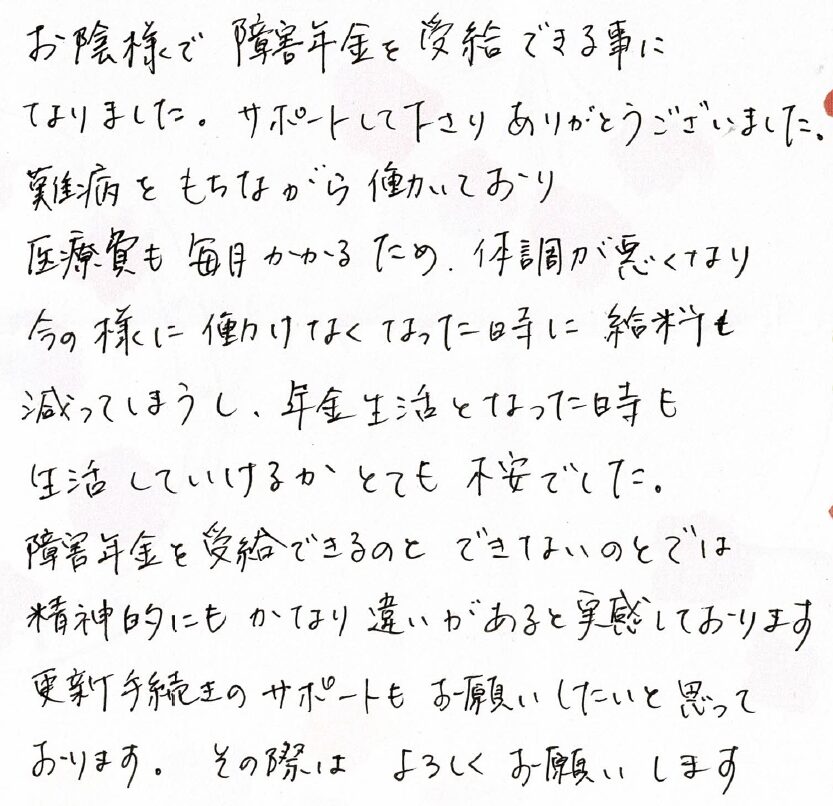 お陰様で障害年金を受給できる事に
なりました。サポートして下さりありがとうございました。
難病をもちながら働いており
医療費も毎月かかるため、体調が悪くなり
今の様に働けなくなった時に給料も
減ってしまうし、年金生活となった時も
生活していけるかとても不安でした。
障害年金を受給できるのとできないのとでは
精神的にもかなり違いがあると実感しております
更新手続きのサポートもお願いしたいと思って
おります。その際はよろしくお願いします